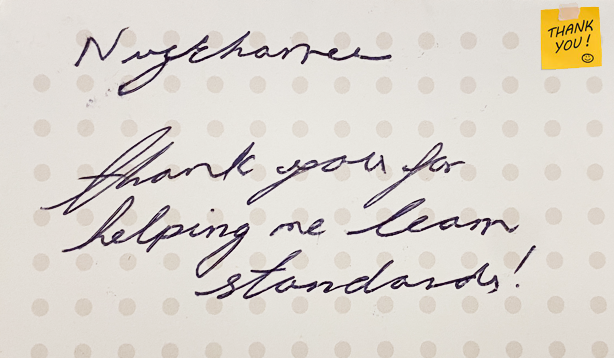 THANK
YOU!
thank you for
helping me learn
standards!